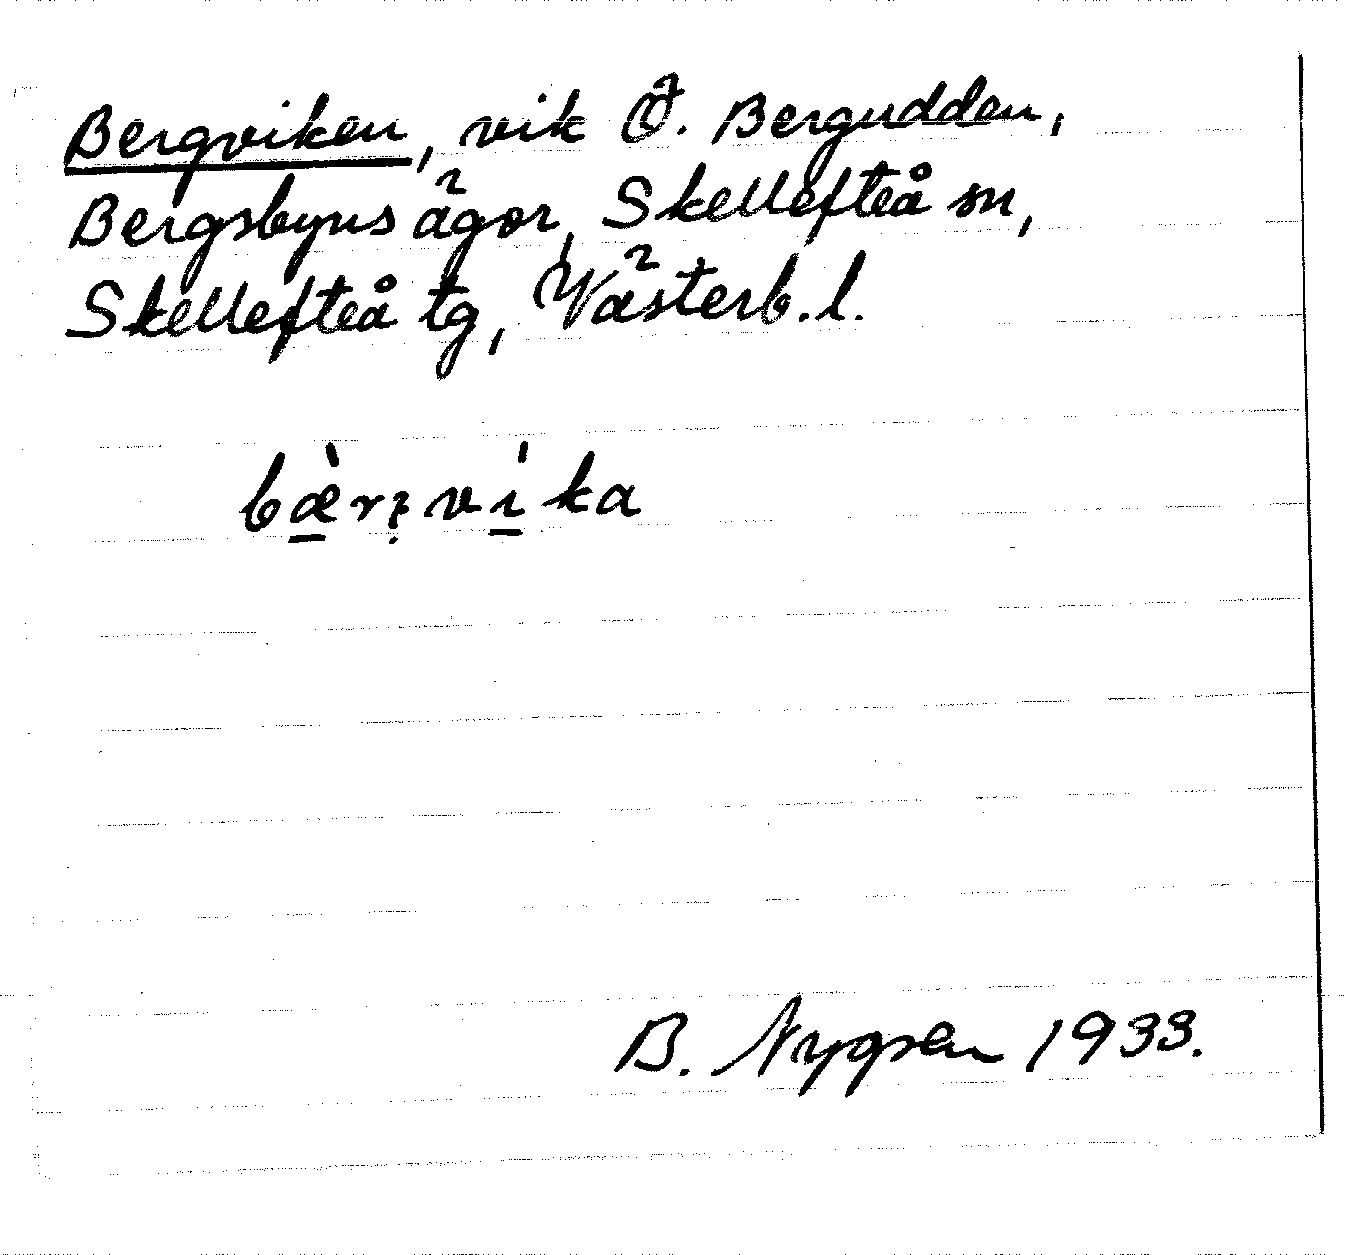 Bergviken, vik Ö. Bergudden,
Bergsbyns ägor, Skellefteå sn,
Skellefteå tg, Västerb. l.
bæ̀rʒ̣vı̍ka
B. Nygren 1933.